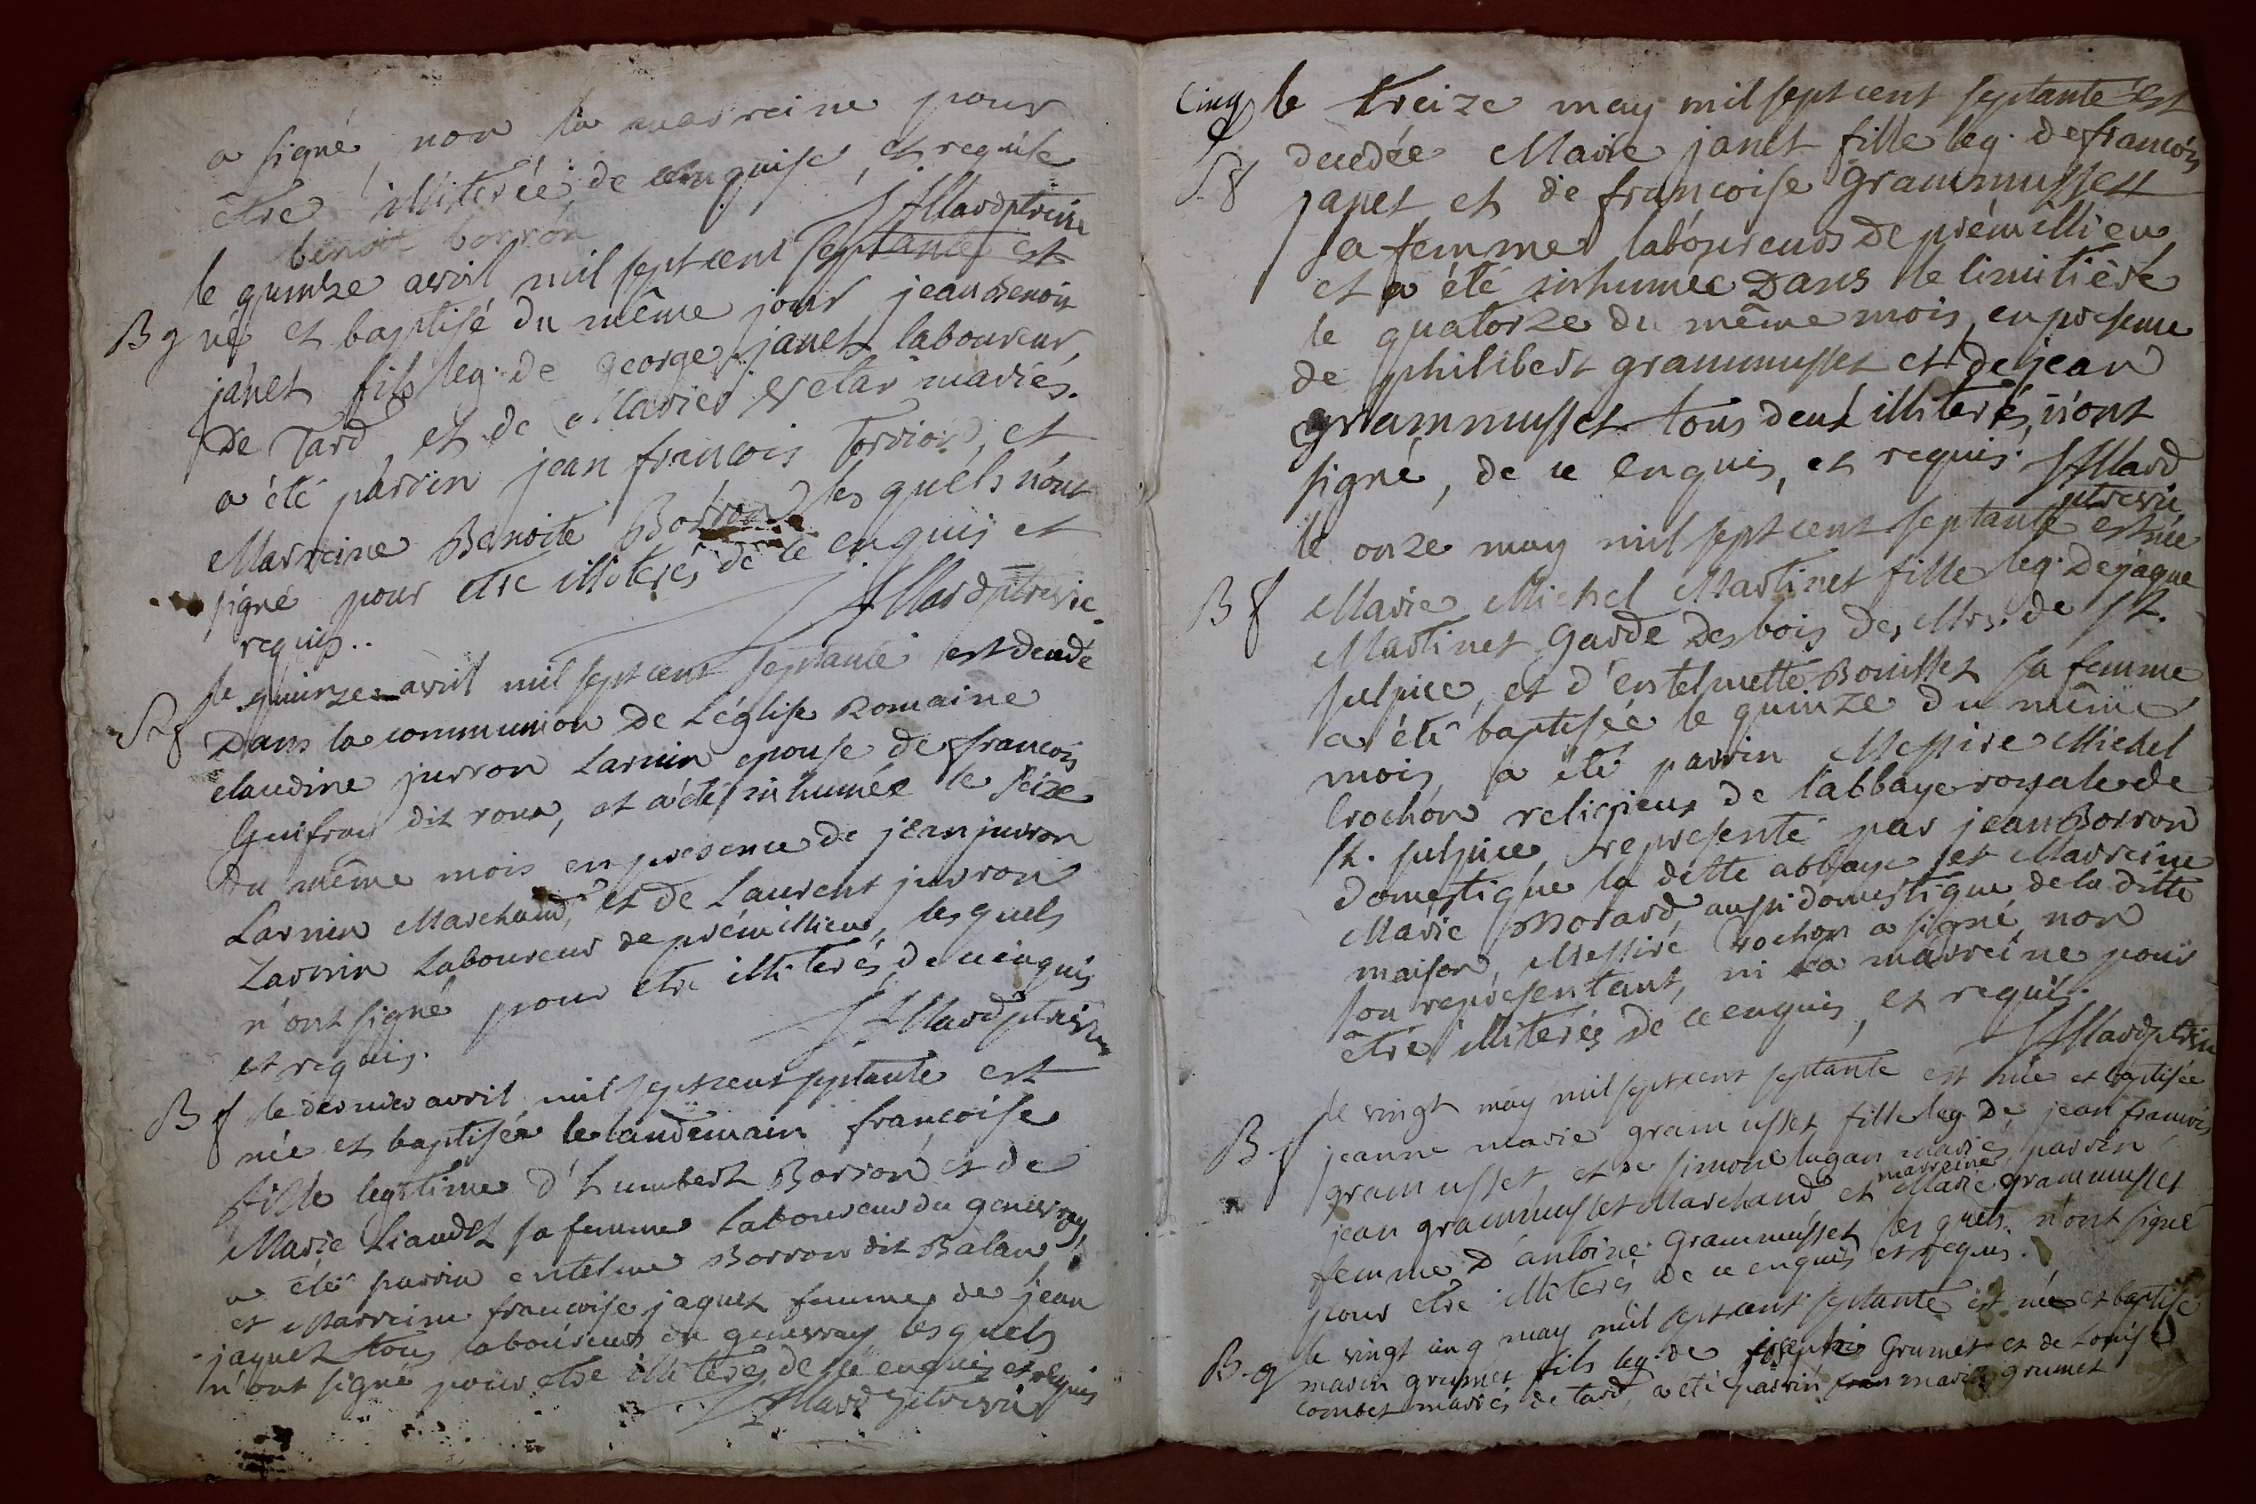 a signé, non la marreine pour
être illiterée, de ce enquise, et requise
benoit borron
J Allard ptre vic
le quinze avril mil sept cent septante est
B g né et baptisé du même jour jean Benoit
janet fils leg. de george janet laboureur
de Tard, et de Marie Vetar mariés.
a été parrin jean françois Torvion, et
Marreine Benoite Borron les quels n'ont
signé pour etre illiterés de ce enquis et
requis..
J Allard ptre vic.
le quinze avril mil sept cent septante est decedé
S f Dans la communion de L'église Romaine
claudine jurron Larnin epouse de françois
Guifrai dit roux, et a été inhumée le seize
du même mois en presence de jean jurron
Larnin Marchand, et de Laurent jurron
Larnin Laboureur de prémillieu, les quels
n'ont signé pour etre illiterés, de ce enquis
et requis.
J Allard ptre vic
B f le dernier avril mil sept cent septante est
née et baptisée le landemain françoise
fille legitime d'humbert Borron et de
Marie Liaudet sa femme Laboureur du genevray,
a été parrin entelme Borron dit Balan
et Marreine françoise jaquet femme de jean
jaquet tous laboureurs du genevray les quels
n'ont signé pour etre illiterés de ce enquis et requis
J Allard ptre vic
Cinq le treize may mil sept cent septante est
S f decedée Marie janet fille leg. de françois
janet et de françoise grammusset
sa femme laboureurs de prémillieu
et a été inhumée Dans le cimitière
le quatorze du même mois, en presence
de philibert grammusset et de jean
grammusset tous deux illiterés, n'ont
signé, de ce enquis, et requis. J Allard
ptre vic
le onze may mil sept cent septante est née
B f Marie Michel Martinet fille leg. De jaque
Martinet Garde Des bois de, Mrs. de St.
sulpice, et d'entelmette Bouisset sa femme
a été baptisée le quinze du même
mois, a été parrin Messire Michel
Crochon religieux de l'abbaye royale de
St. sulpice, representé par jean Borron
Domestique la ditte abbaye, et Marreine
Marie Morard aussi domestique de la ditte
maison, Messire Crochon a signé, non
son représentant, ni la marreine pour
être illiterés de ce enquis, et requis.
J Allard ptre vic
le vingt may mil sept cent septante est née et baptisée
B f jeanne marie gramusset fille leg. De jean françois
gramusset, et de simone lugan mariés, parrin
jean grammusset Marchand et marreine Marie grammusset
femme D'antoine Grammusset les quels n'ont signé
pour etre illiterés de ce enquis et requis.
le vingt cinq may mil sept cent septante est né et baptisé
B. g marin grumet fils leg. de joseph Grumet et de Louise
Combet mariés de tard, a été parrin marin grumet